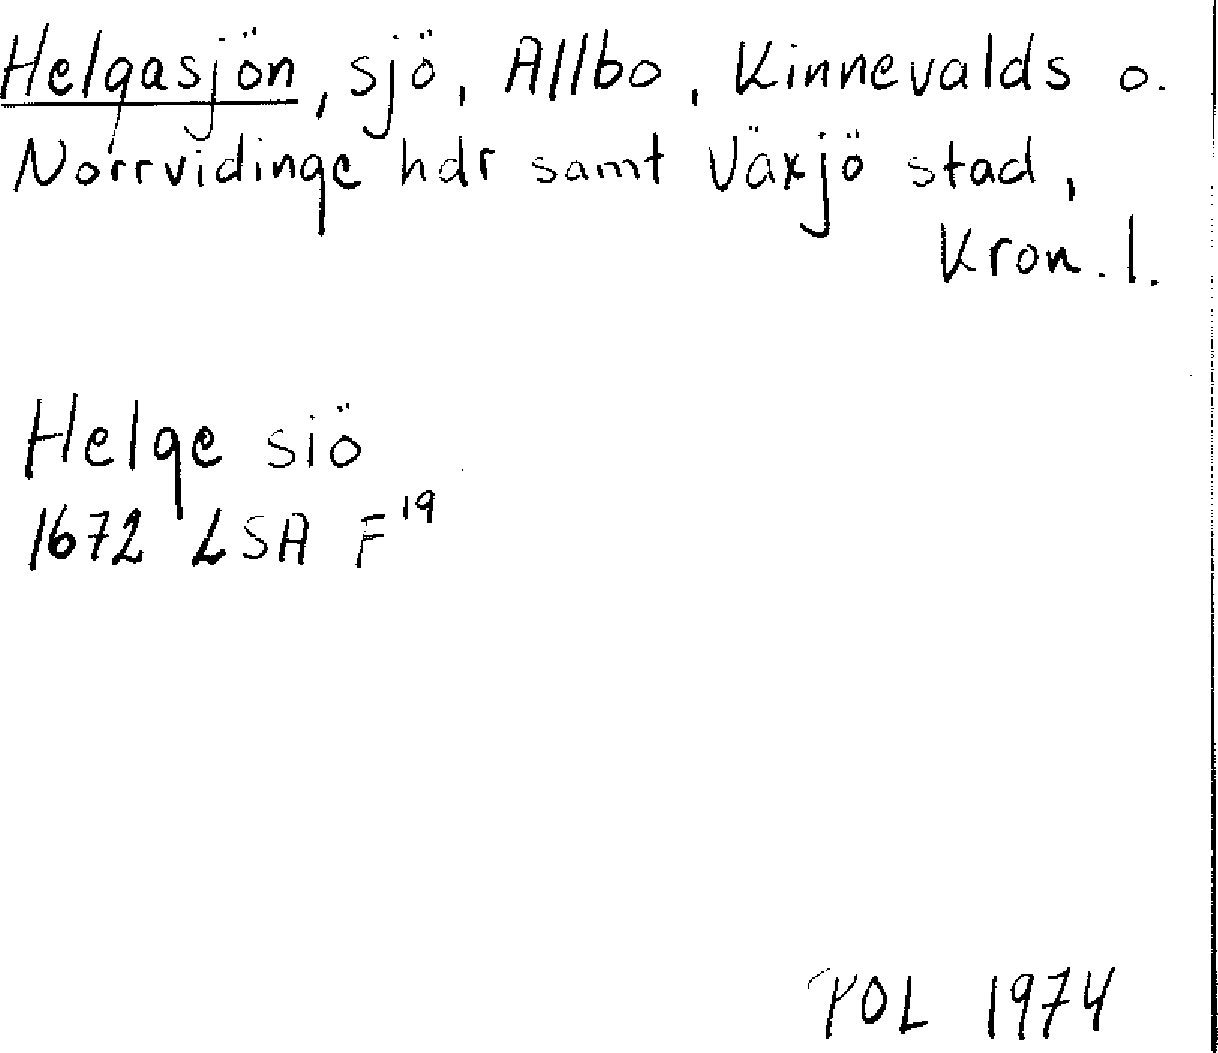 Helgasjön, sjö, Allbo, Kinnevalds o.
Norrvidinge hdr samt Växjö stad,
Kron. l.
Helge siö
1672 LSA F¹⁹
POL 1974